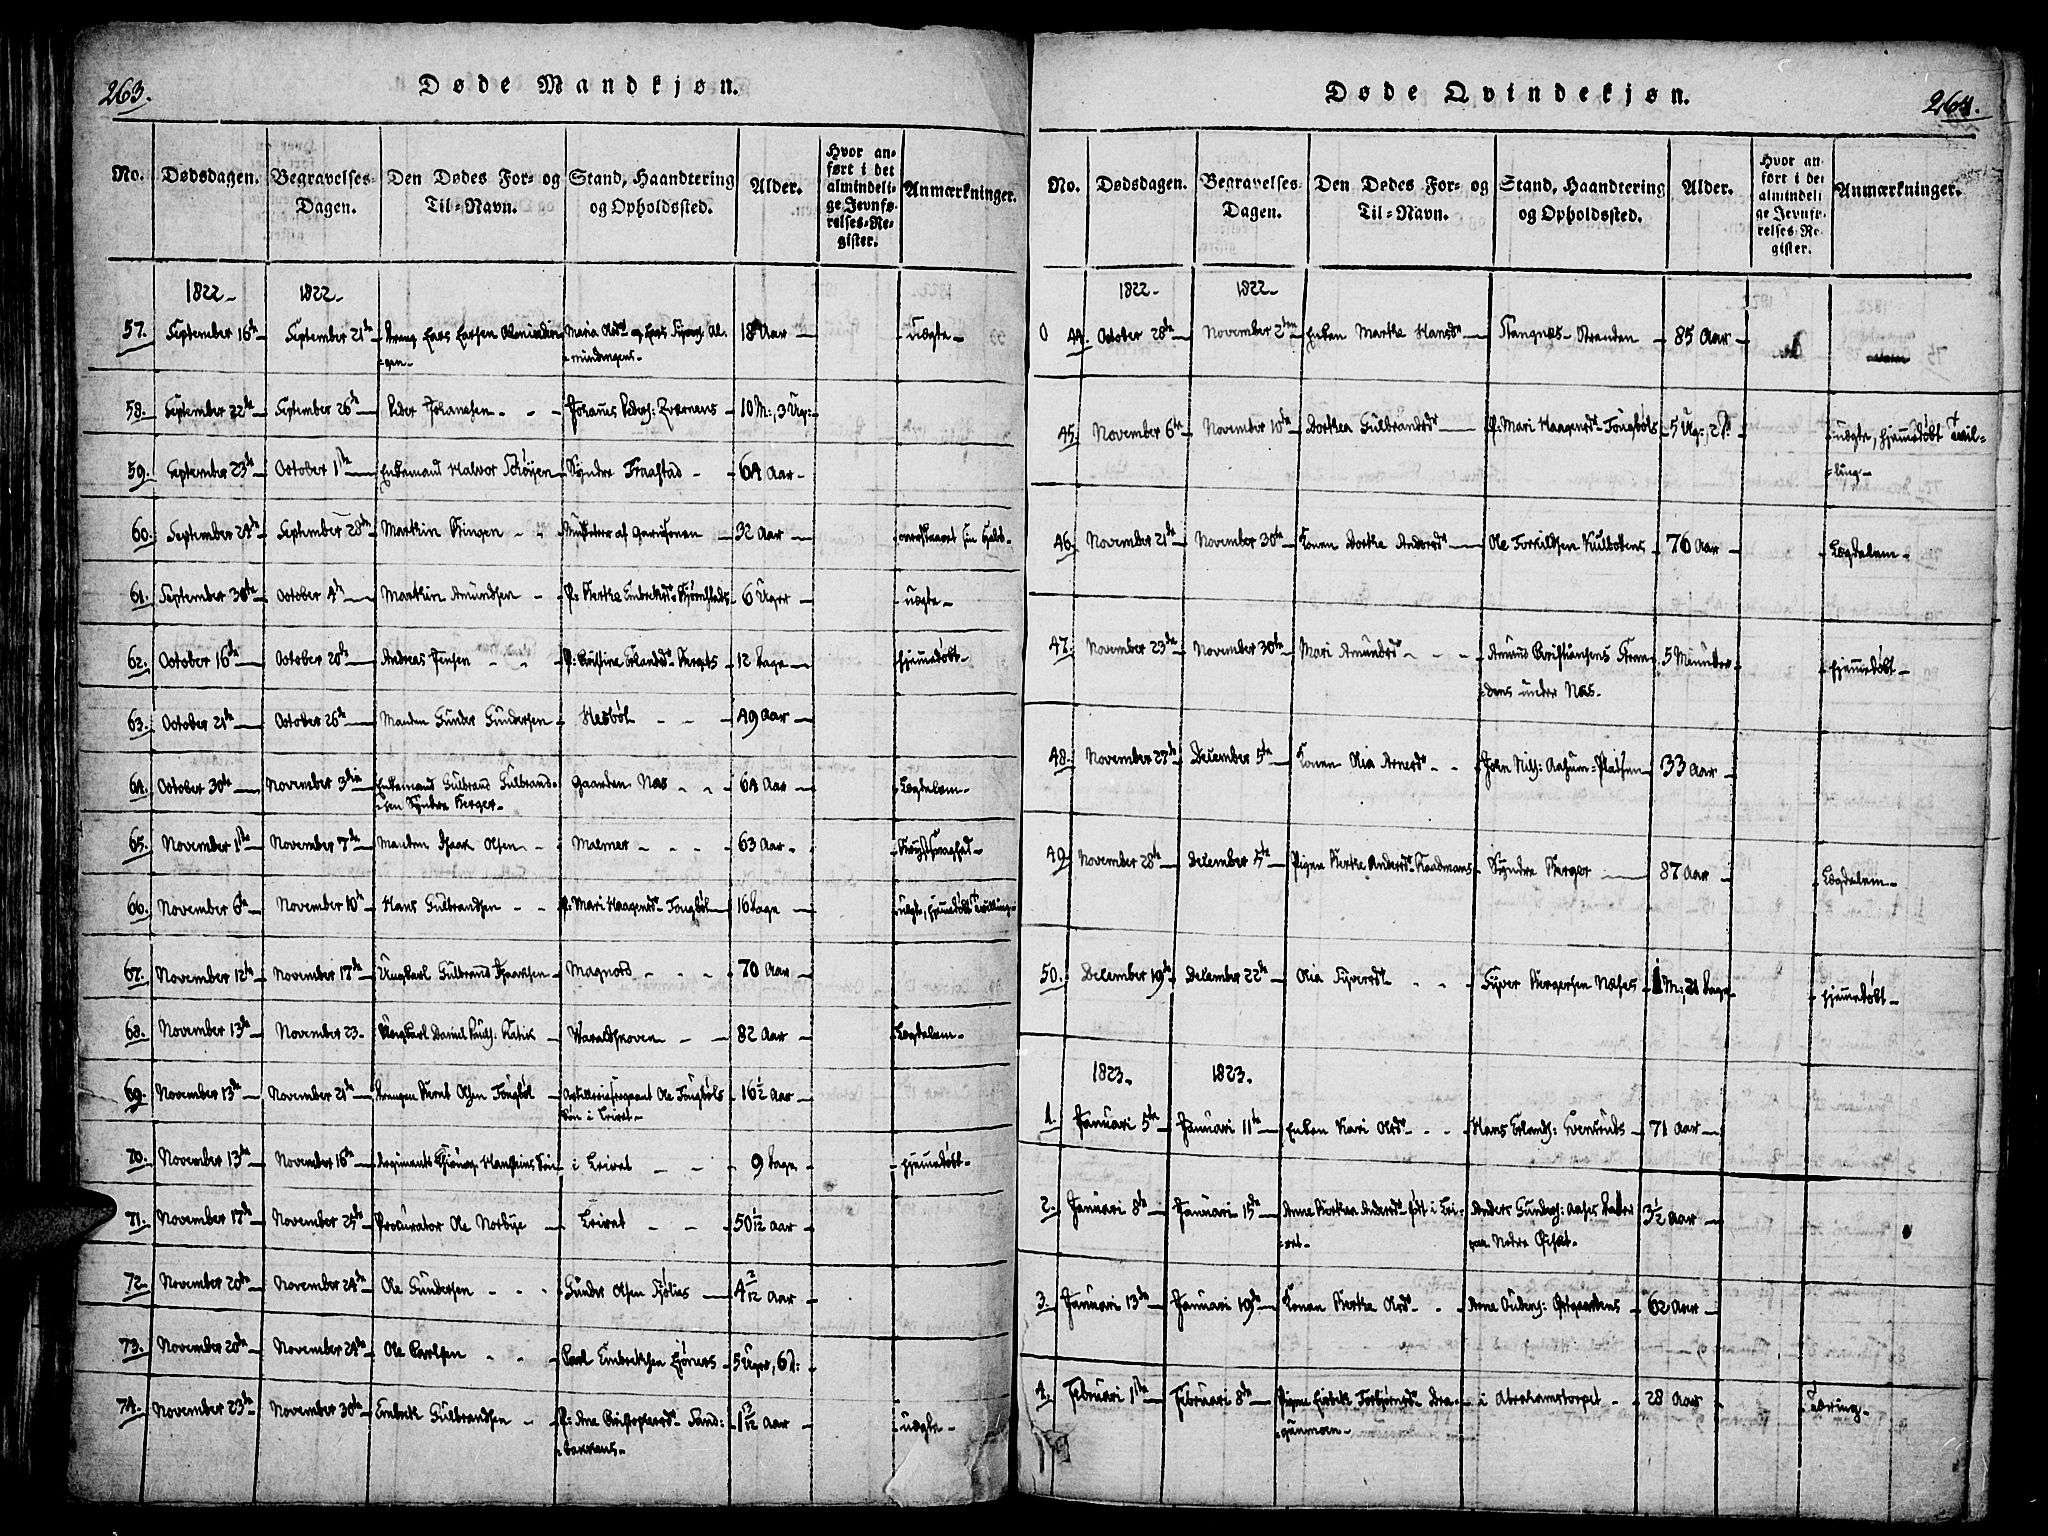 263.
Døde Mandkjøn.
No. Dødsdagen. Begravelses-Dagen. Den Dødes For- og Til-Navn. Stand, Haandtering og Opholdssted. Alder. Hvor anført i det almindelige Jevnførelses-Register. Anmærkninger.
1822 1822
57. September 16de September 21de Lars Larsen Almindin-
gen
Maria Olsd. og Lars Al-
mindingens 18 Aar uægte
58. September 22de September 26de Peder Johansen Johanes Peders: 10 M:, 3 Ug:
59. September 23de October 1ste Enkemand Halvor Syndre Fraastad 64 Aar
60. September 24de September 28de Marthin Ringen af Garnisonen 32 Aar
61. September 30te October 4de Marthin Amundsen P: Berthe Embrektsd. 6 Uger uægte
62. October 16de October 20de Andreas Jensen P: Christine Erlandsd. Bergets 12 Dage hjemmedøbt
63. October 21de October 26de Manden Gunder Gundersen Hesbøl 49 Aar
64. October 30te November 3die Enkemand Gulbrand Gulbrand-
sen Syndre Berger
Gaarden Næs 64 Aar Lægdslem
65. November 1ste November 7de Manden Isaac Olsen Malmer 63 Aar
66. November 6te November 10de Hans Gulbrandsen P: Mari Haagensd. Tougbøl 16 Dage uægte, hjemmedøbt Tvilling
67. November 12te November 17de Ungkarl Gulbrand Isaacsen Magnord 70 Aar
68. November 13de November 23 Ungkarl Daniel Pauls: 82 Aar Lægdslem
69. November 13de November 21de Drengen Bernt Olsen Tougbøl Ole Tougbøls
Søn i Leiret 16½ Aar
70. November 13de November 16de Regiments Søn i Leiret 9 Dage hjemmedøbt
71. November 17de November 25de Procurator Ole Norbye Leiret 50 1/12 Aar
72. November 20de November 24de Ole Gundersen Gunder Olsen Sjølies 4 2/12 Aar
73. November 20de November 24de Ole Carlsen Carl Embrektsen 5 Uger, 6 D:
74. November 23de November 30te Embrek Gulbrandsen P: Ane Christophersd. Sand-
bakkens 1 3/12 Aar uægte
264.
Døde Qvindekjøn.
No. Dødsdagen. Begravelses-Dagen. Den Dødes For- og Til-Navn. Stand, Haandtering og Opholdssted. Alder. Hvor anført i det almindelige Jevnførelses-Register. Anmærkninger.
1822 1822
44. October 28de November 2den Enken Marthe Hansd. Stangnæs-Stranden 85 Aar
45. November 6te November 10de Dorthea Gulbrandsd. P: Mari Haagensd. Tougbøls 5 Ug:, 2 D. uægte, hjemmedøbt Tvil-
ling
46. November 21de November 30te Konen Dorthe Andersd. Ole Torkildsen Kulbotens 76 Aar Lægdslem
47. November 23de November 30te Mari Amundsd. Amund Christiansens Stran-
dens under Næs. 5 Maaneder hjemmedøbt
48. November 27de December 5te Konen Olia Arnesd. John Nils: Aahum-Pladsen 33 Aar
49. November 28de December 5te Pigen Berthe Andersd. Haadmans Syndre Berger 87 Aar Lægdslem
50. December 19de December 22de Olia Syversd. Syver Bergersen Næses 1 M:, 21 Dage hjemmedøbt
1823. 1823.
1. Januari 5te Januari 11te Enken Kari Olsd. Hans Erlands: 71 Aar
2. Januari 8de Januari 15de Anne Berthea Andersd. født i Lei-
ret
Anders Gunders: Aases Datter
paa Nedre 3½ Aar
3. Januari 13de Januari 19de Konen Berthe Olsd. 62 Aar
4. Februari 1ste Februari 8de Pigen Torbjørnsd. Bra-
ganmoen
i Abrahamstorpet 28 Aar Tæring